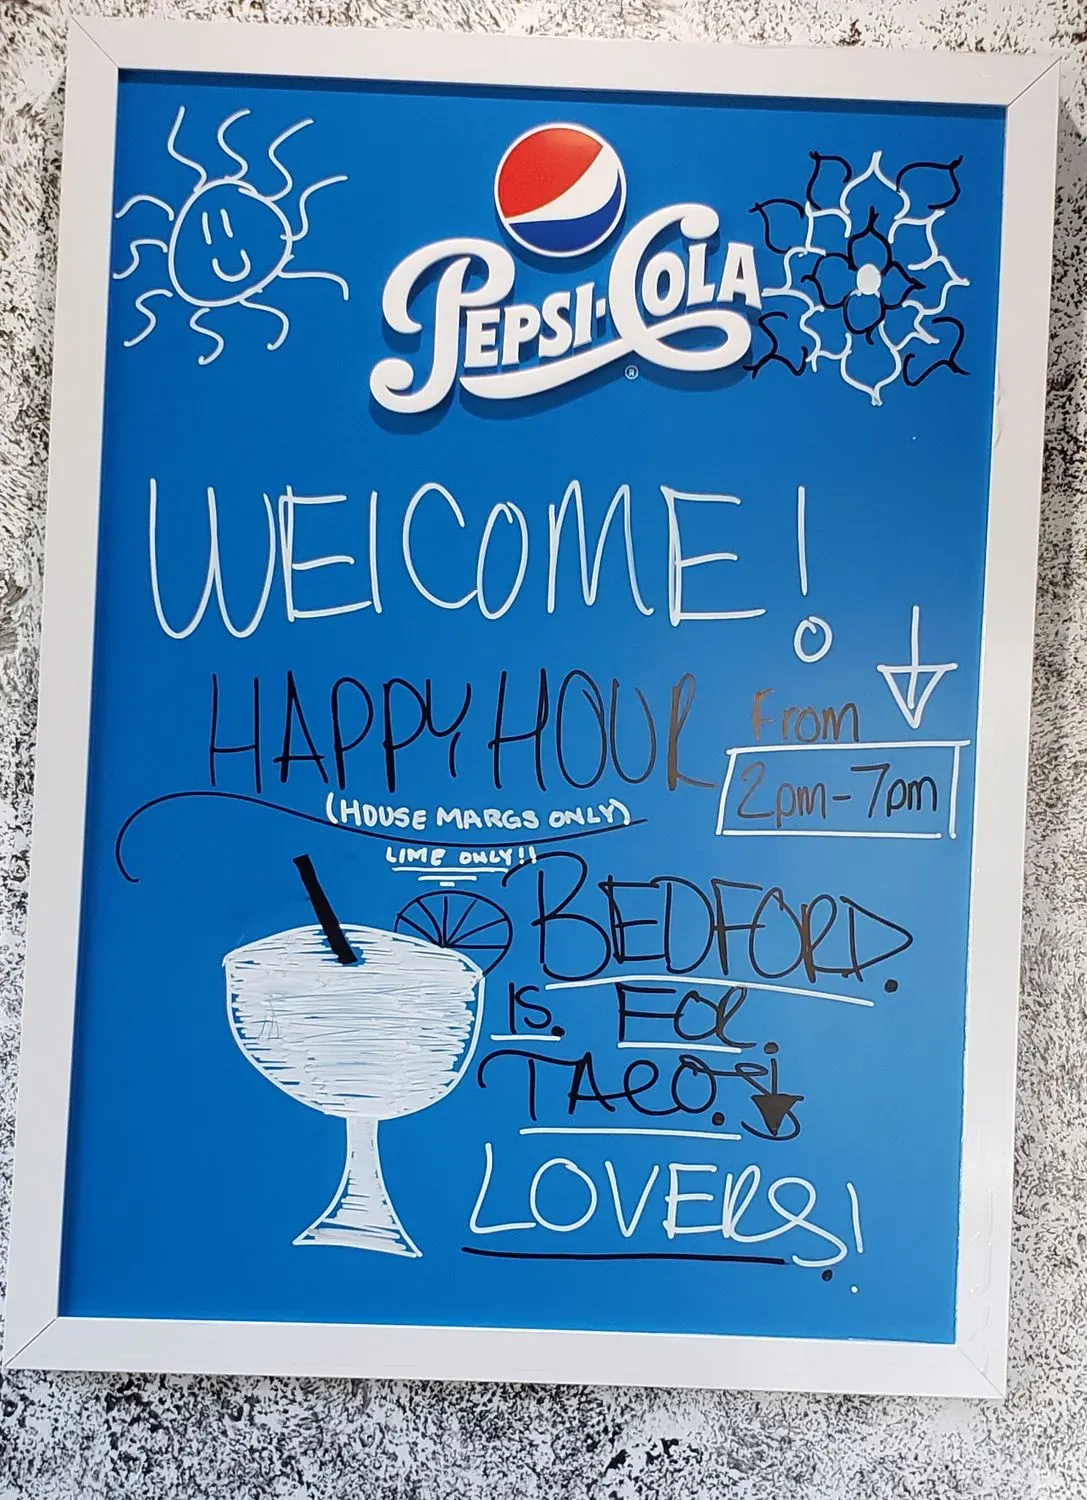 PEPSI-COLA
®
WELCOME!
HAPPY HOUR From
2pm-7pm
(HOUSE MARGS ONLY)
LIME ONLY!!
BEDFORD.
IS. FOR.
TACO.
LOVERS!